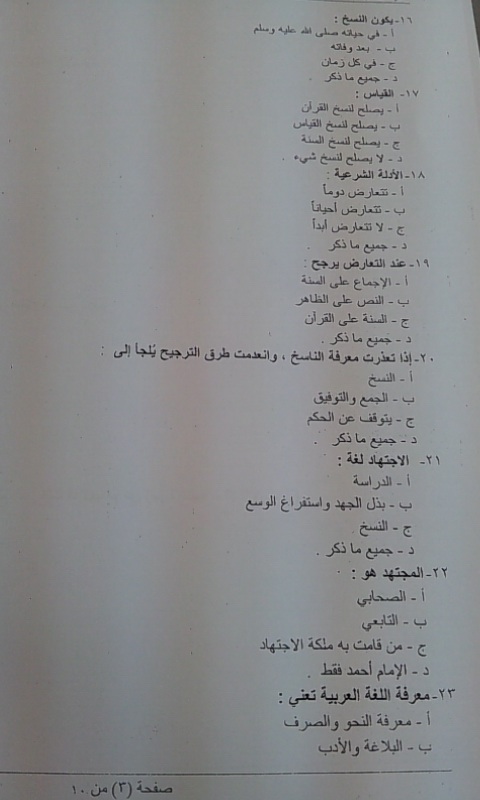 ١٦- يكون النسخ :
أ - في حياته صلى الله عليه وسلم
ب - بعد وفاته
ج - في كل زمان
د - جميع ما ذكر .
١٧- القياس :
أ - يصلح لنسخ القرآن
ب - يصلح لنسخ القياس
ج - يصلح لنسخ السنة
د - لا يصلح لنسخ شيء .
١٨- الأدلة الشرعية :
أ - تتعارض دوماً
ب - تتعارض أحياناً
ج - لا تتعارض أبداً
د - جميع ما ذكر .
١٩- عند التعارض يرجح :
أ - الإجماع على السنة
ب - النص على الظاهر
ج - السنة على القرآن
د - جميع ما ذكر .
٢٠- إذا تعذرت معرفة الناسخ ، وانعدمت طرق الترجيح يُلجأ إلى :
أ - النسخ
ب - الجمع والتوفيق
ج - يتوقف عن الحكم
د - جميع ما ذكر .
٢١- الاجتهاد لغة :
أ - الدراسة
ب - بذل الجهد واستفراغ الوسع
ج - النسخ
د - جميع ما ذكر .
٢٢- المجتهد هو :
أ - الصحابي
ب - التابعي
ج - من قامت به ملكة الاجتهاد
د - الإمام أحمد فقط .
٢٣- معرفة اللغة العربية تعني :
أ - معرفة النحو والصرف
ب - البلاغة والأدب
صفحة (٣) من ١٠